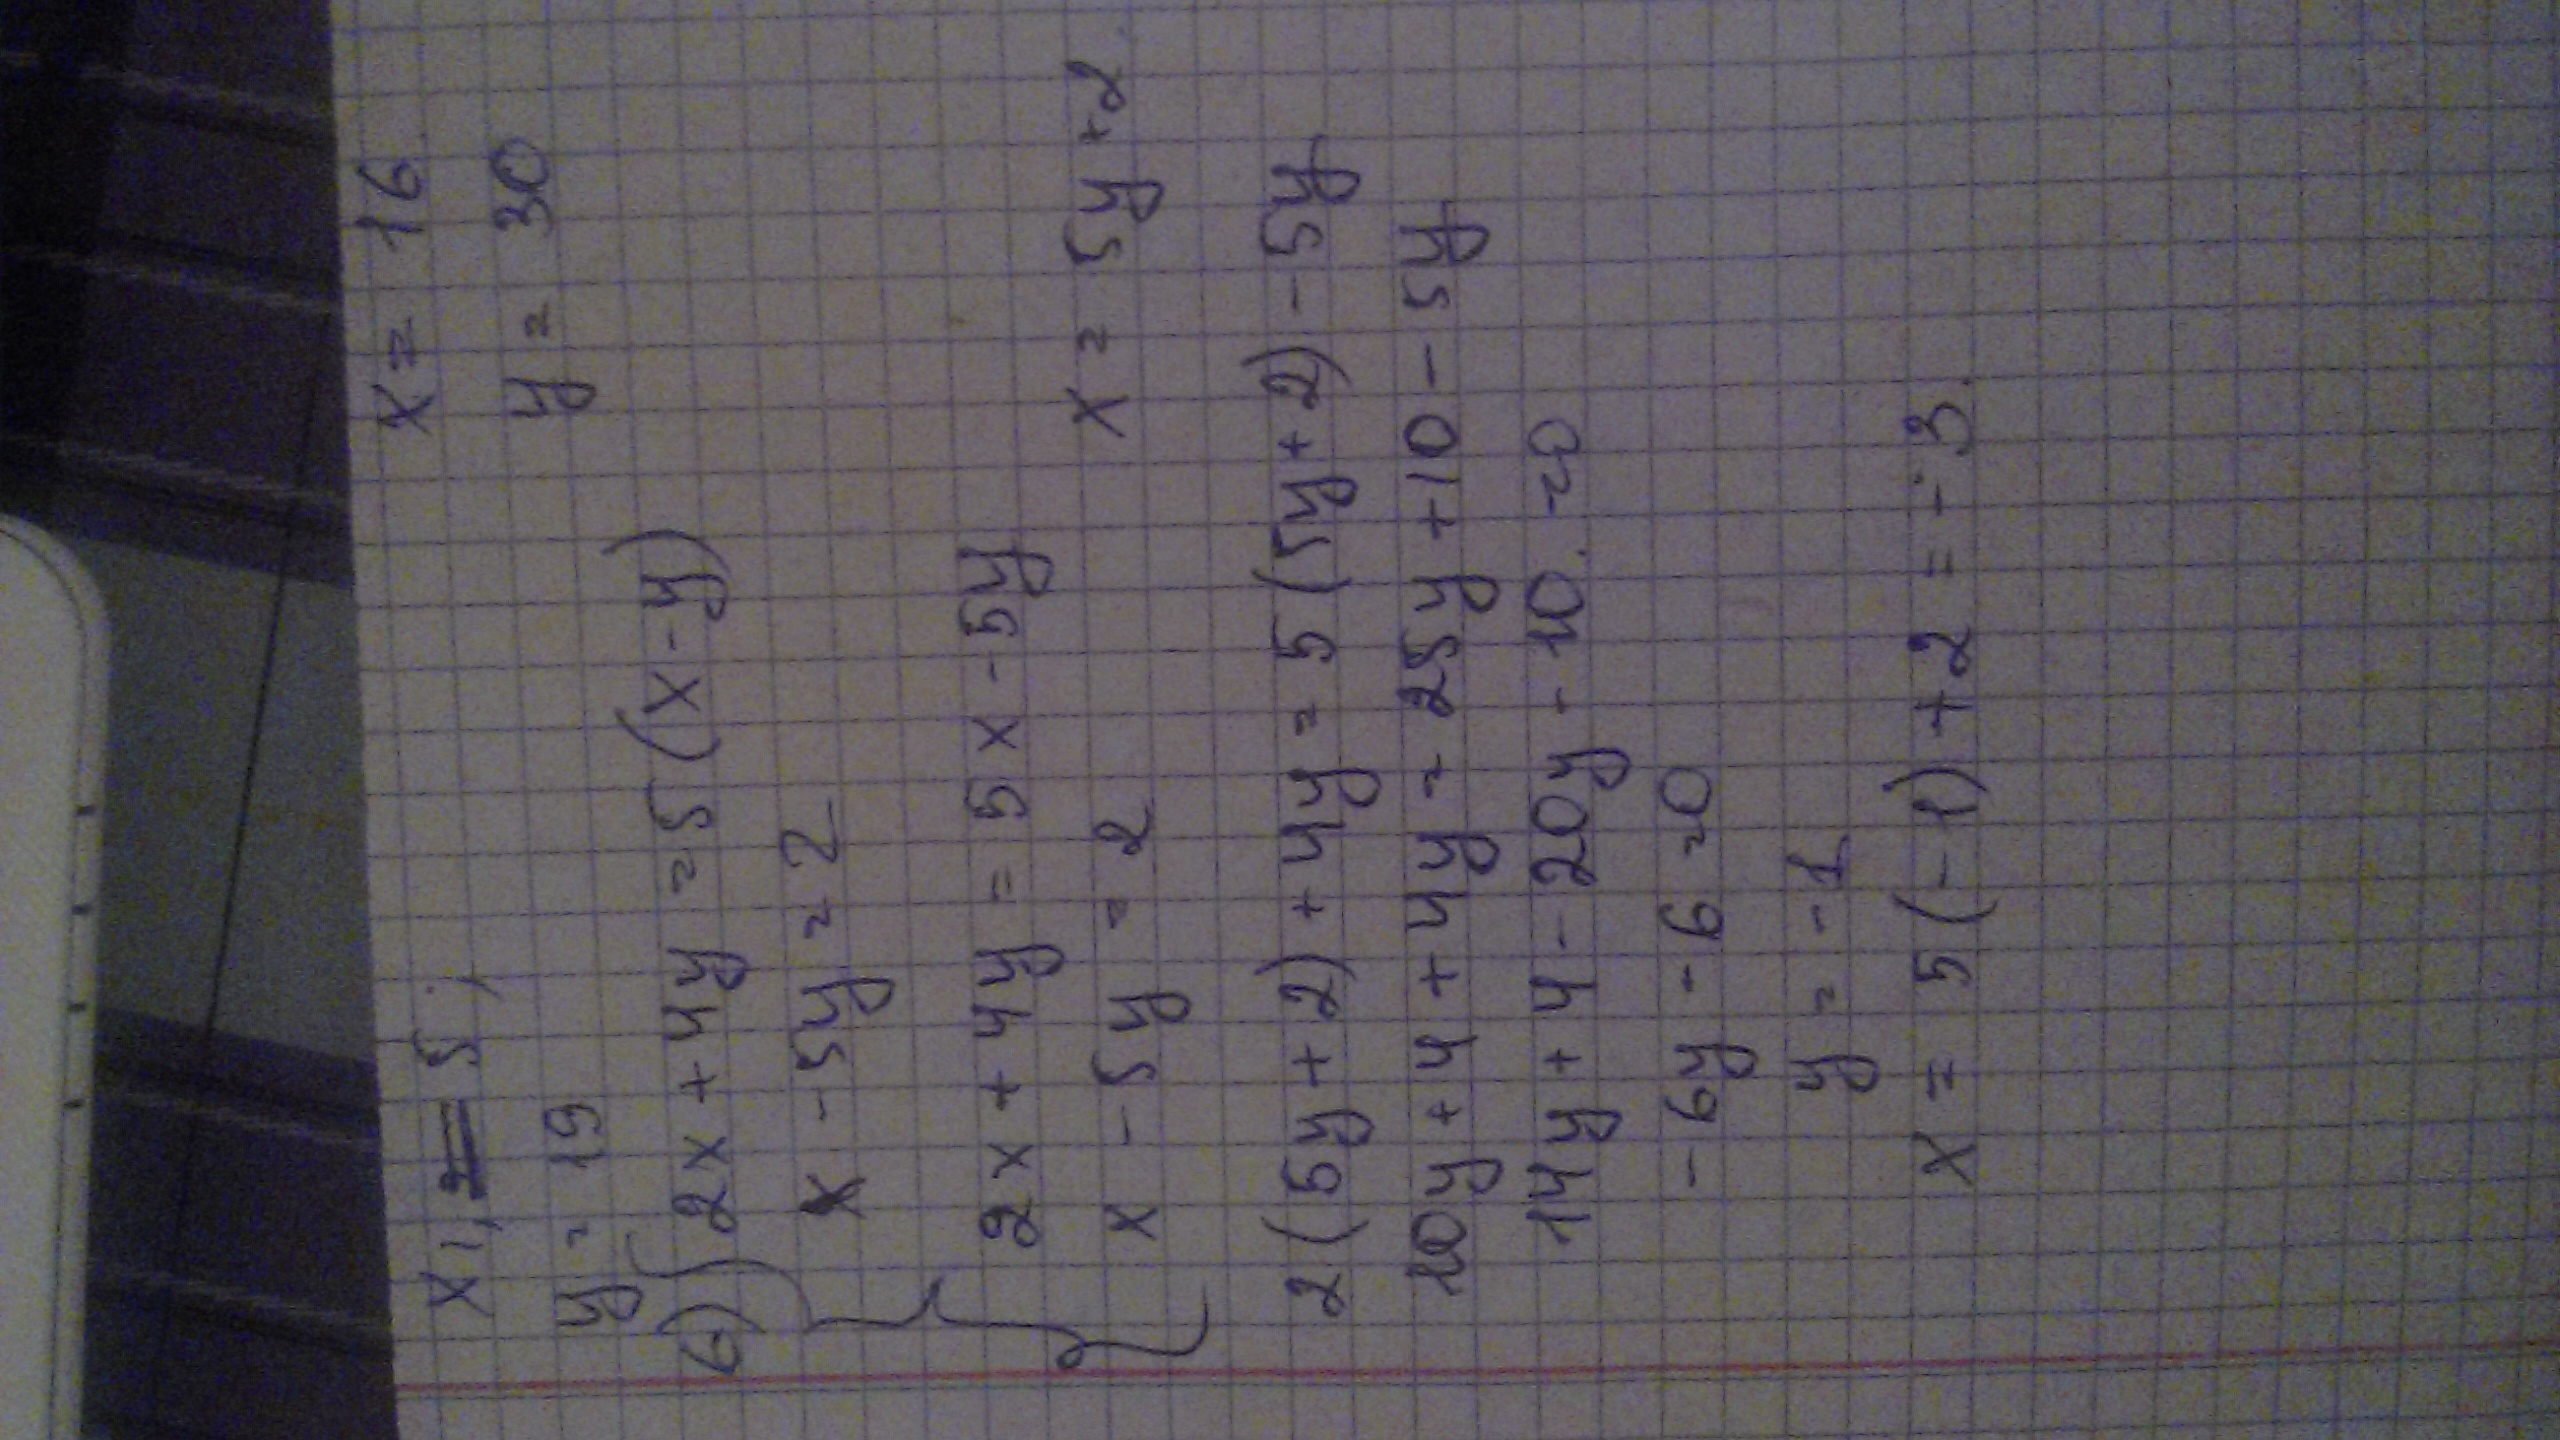 x₁, = 5; x = 16
y = 19 y = 30
6) { 2x + 4y = 5(x - y)
x - 5y = 2
{ 2x + 4y = 5x - 5y
x - 5y = 2 x = 5y + 2
2(5y + 2) + 4y = 5(5y + 2) - 5y
10y + 4 + 4y = 25y + 10 - 5y
14y + 4 - 20y - 10 = 0
- 6y - 6 = 0
y = - 1
x = 5(-1) + 2 = - 3.